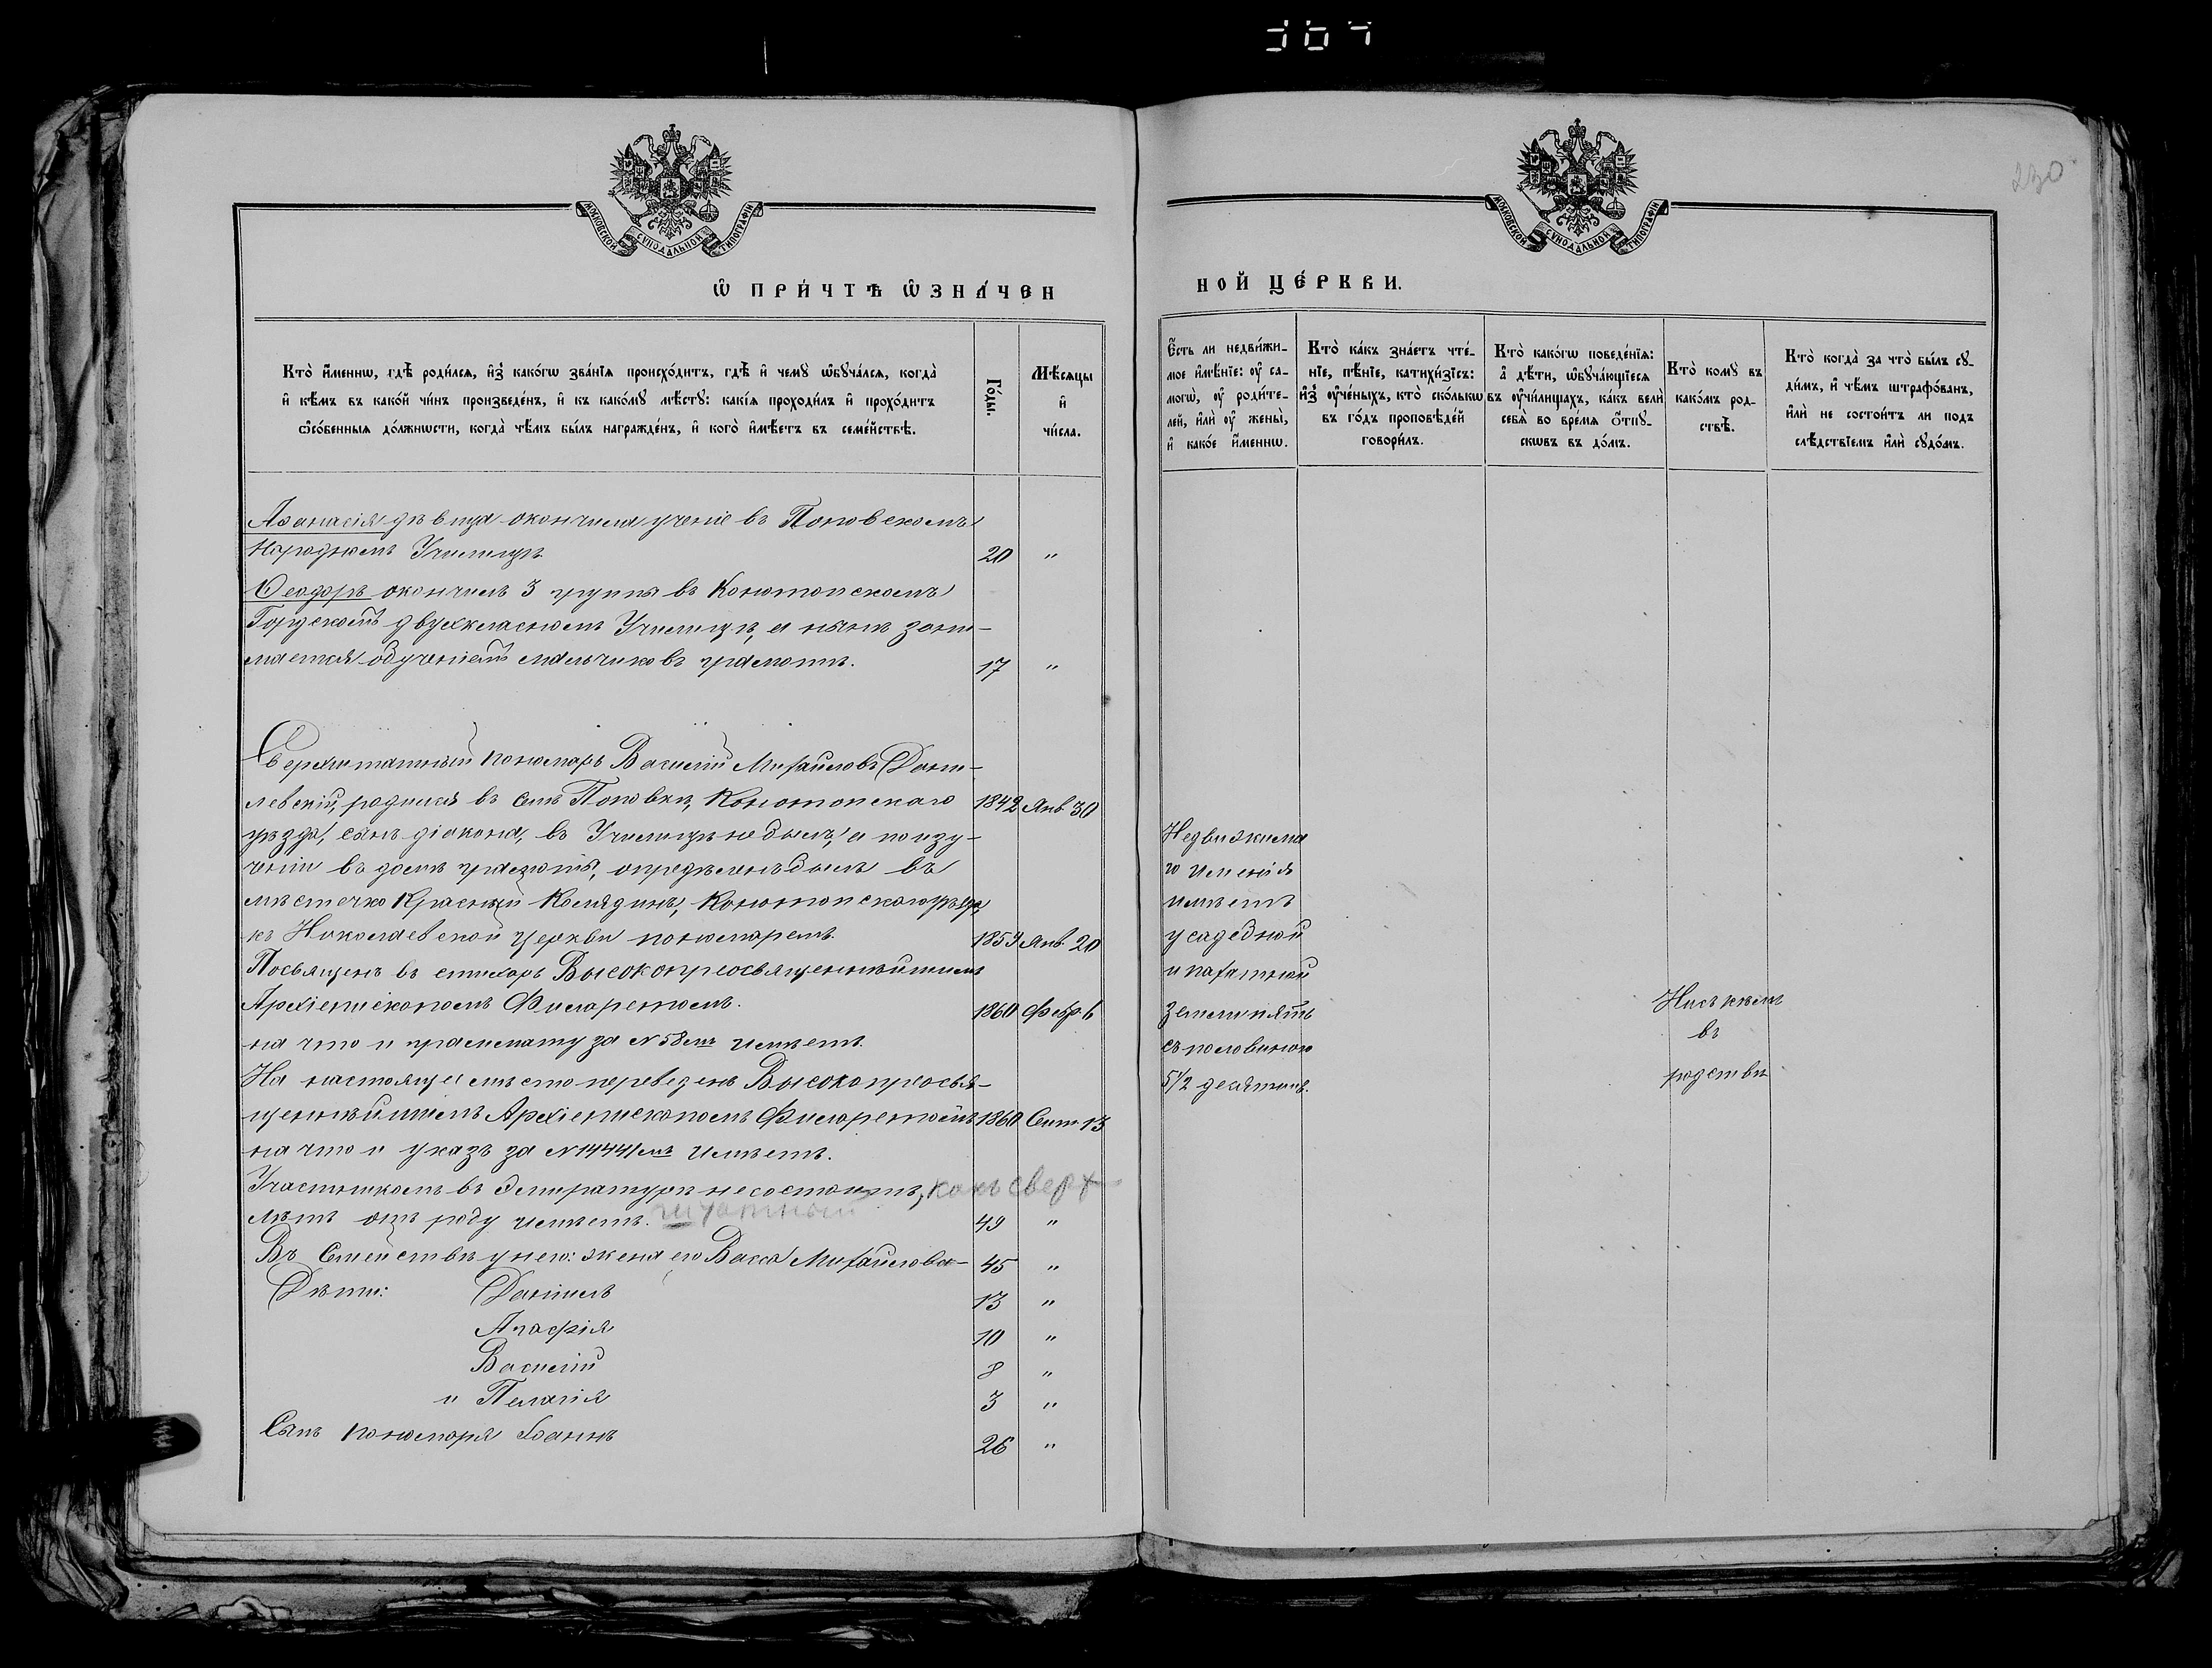 230
МОСКОВСКОЙ СѴНОДАЛЬНОЙ ТИПОГРАФІИ
МОСКОВСКОЙ СѴНОДАЛЬНОЙ ТИПОГРАФІИ
Ѡ ПРИ́ЧТѢ ѠЗНА́ЧЕН
НОЙ ЦЕ́РКВИ.
Кто̀ и҆́менно, гдѣ̀ роди́лся, и҆з̾ како́гѡ зва́нїя происхо́дитъ, гдѣ̀ и҆ чемꙋ̀ ѡ҆бꙋча́лся, когда̀
и҆ кѣ́мъ въ како́й чи́нъ произведе́нъ, и҆ къ како́мꙋ мѣ́стꙋ: какі́я проходи́лъ и҆ прохо́дитъ
ѻ҆со́бенныя до́лжности, когда̀ чѣ́мъ бы́лъ награжде́нъ, и҆ кого̀ и҆мѣ́етъ въ семе́йствѣ.
Го́ды.
Мѣ́сяцы
и҆
чи́сла.
Є҆́сть ли недви́жи-
мое и҆мѣ́нїе: ᲂу҆ са-
могѡ̀, ᲂу҆ роди́те-
лей, и҆лѝ ᲂу҆ жены̀,
и҆ како́е и҆́меннѡ.
Кто̀ ка́къ зна́етъ чте́-
нїе, пѣ́нїе, катихи́зїсъ:
и҆з̾ ᲂу҆че́ныхъ, кто̀ ско́лькѡ
въ го́дъ проповѣ́дей
говори́лъ.
Кто̀ како́гѡ поведе́нїя:
а҆ дѣ́ти, ѡ҆бꙋча́ющїеся
въ ᲂу҆чи́лищахъ, ка́къ велѝ
себя̀ во вре́мя ѿпꙋ-
сковъ въ до́мъ.
Кто̀ комꙋ̀ въ
како́мъ род-
ствѣ̀.
Кто̀ когда̀ за что̀ бы́лъ сꙋ-
ди́мъ, и҆ чѣ́мъ штрафо́ванъ,
и҆лѝ не состои́тъ ли подъ
слѣ́дствїемъ и҆лѝ сꙋдо́мъ.
Аѳанасія дѣвица окончила ученіе въ Поповскомъ
Народномъ Училищѣ 20 "
Ѳеодоръ окончилъ 3 группы въ Конотопскомъ
Городскомъ двухкласномъ Училищѣ, а нынѣ зани-
мается обученіемъ мальчиковъ грамотѣ. 17 "
Сверхштатный пономарь Василій Михайловъ Дани-
левскій, родился въ селѣ Поповки, Конотопскаго 1842 Янв 30
уѣзда, сынъ діакона, въ Училищѣ не былъ, а по изу-
ченіи въ домѣ грамотѣ, опредѣленъ былъ въ
мѣстечко Красный Колядинъ, Конотопскаго уѣзда,
къ Николаевской церкви пономаремъ. 1854 Янв 20
Посвященъ въ стихарь Высокопреосвященнѣйшимъ
Архіепископомъ Филаретомъ. 1860 Февр 6
на что и грамматy за № 58мъ имѣетъ.
На настоящее мѣсто переведенъ Высокопреосвя-
щеннѣйшимъ Архіепископомъ Филаретомъ 1860 Сент 13
на что и указъ за № 14441мъ имѣетъ.
Участникомъ въ эмиратурѣ не состоитъ, какъ сверх
штатный
лѣтъ отъ роду имѣетъ. 49 "
Въ Семействѣ у него: жена его Васса Михайлова 45 "
Дѣти: Даніилъ 13 "
Агафія 10 "
Василій 8 "
и Пелагія 3 "
Сынъ пономаря Іоаннъ 26 "
Недвижима
го имѣнія
имѣетъ
усадебной
и пахатной
земли пять
съ половиною
5 1/2 десятинъ.
Ни съ кѣмъ
въ
родствѣ